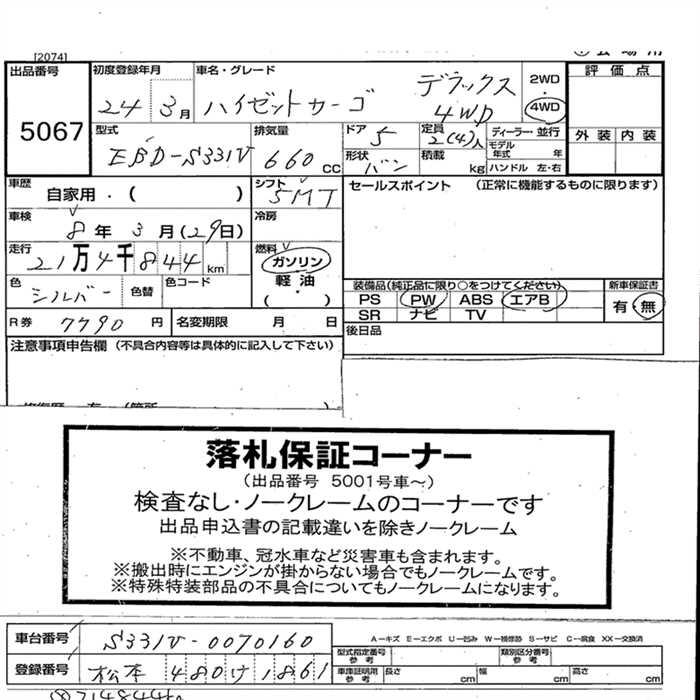 [2074]
出品番号 初度登録年月 車名・グレード 2WD 評価点
5067 24年 3月 ハイゼットカーゴ デラックス 4WD 4WD
外装 内装
型式 排気量 ドア 定員 ディーラー・並行
EBD-S331V 660cc 5 2(4)人 モデル年式 年
形状 バン 積載 kg ハンドル 左・右
車歴 シフト セールスポイント (正常に機能するものに限ります)
自家用・( ) 5MT
車検 冷房
8年 3月(29日)
走行 燃料
21万4千844km ガソリン
軽油
(・)
色 シルバー 色替 色コード
装備品(純正品に限り○をつけてください) 新車保証書
PS PW ABS エアB 有・無
SR ナビ TV
R券 7790円 名変期限 月 日
後日品
注意事項申告欄 (不具合内容等は具体的に記入して下さい)
落札保証コーナー
(出品番号 5001号車~)
検査なし・ノークレームのコーナーです
出品申込書の記載違いを除きノークレーム
※不動車、冠水車など災害車も含まれます。
※搬出時にエンジンが掛からない場合でもノークレームです。
※特殊特装部品の不具合についてもノークレームになります。
車台番号 S331V-0070160
A-キズ E-エクボ U-凹み W-補修跡 S-サビ C-腐食 XX-交換済
型式指定番号 参考 類別区分番号 参考
登録番号 松本 480け1861
車庫証明用 参考 長さ cm 幅 cm 高さ cm